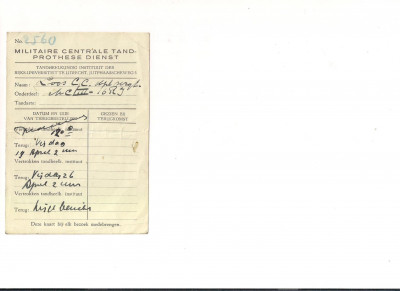 No. 2560
MILITAIRE CENTRALE TAND-
PROTHESE DIENST
TANDHEELKUNDIG INSTITUUT DER
RIJKSUNIVERSITEIT TE UTRECHT, JUTPHAASCHEWEG
Naam: Loos C.C.
Onderdeel:
Tandarts:
DATUM EN UUR
VAN TERUGBESTELLING
REDEN DER
TERUGKOMST
Vertrekken tandheelk. instituut
Terug: Vrijdag
19 April 2 uur
Vertrekken tandheelk. instituut
Terug: Vrijdag 26
April 2 uur
Vertrekken tandheelk. instituut
Terug:
Deze kaart bij elk bezoek medebrengen.